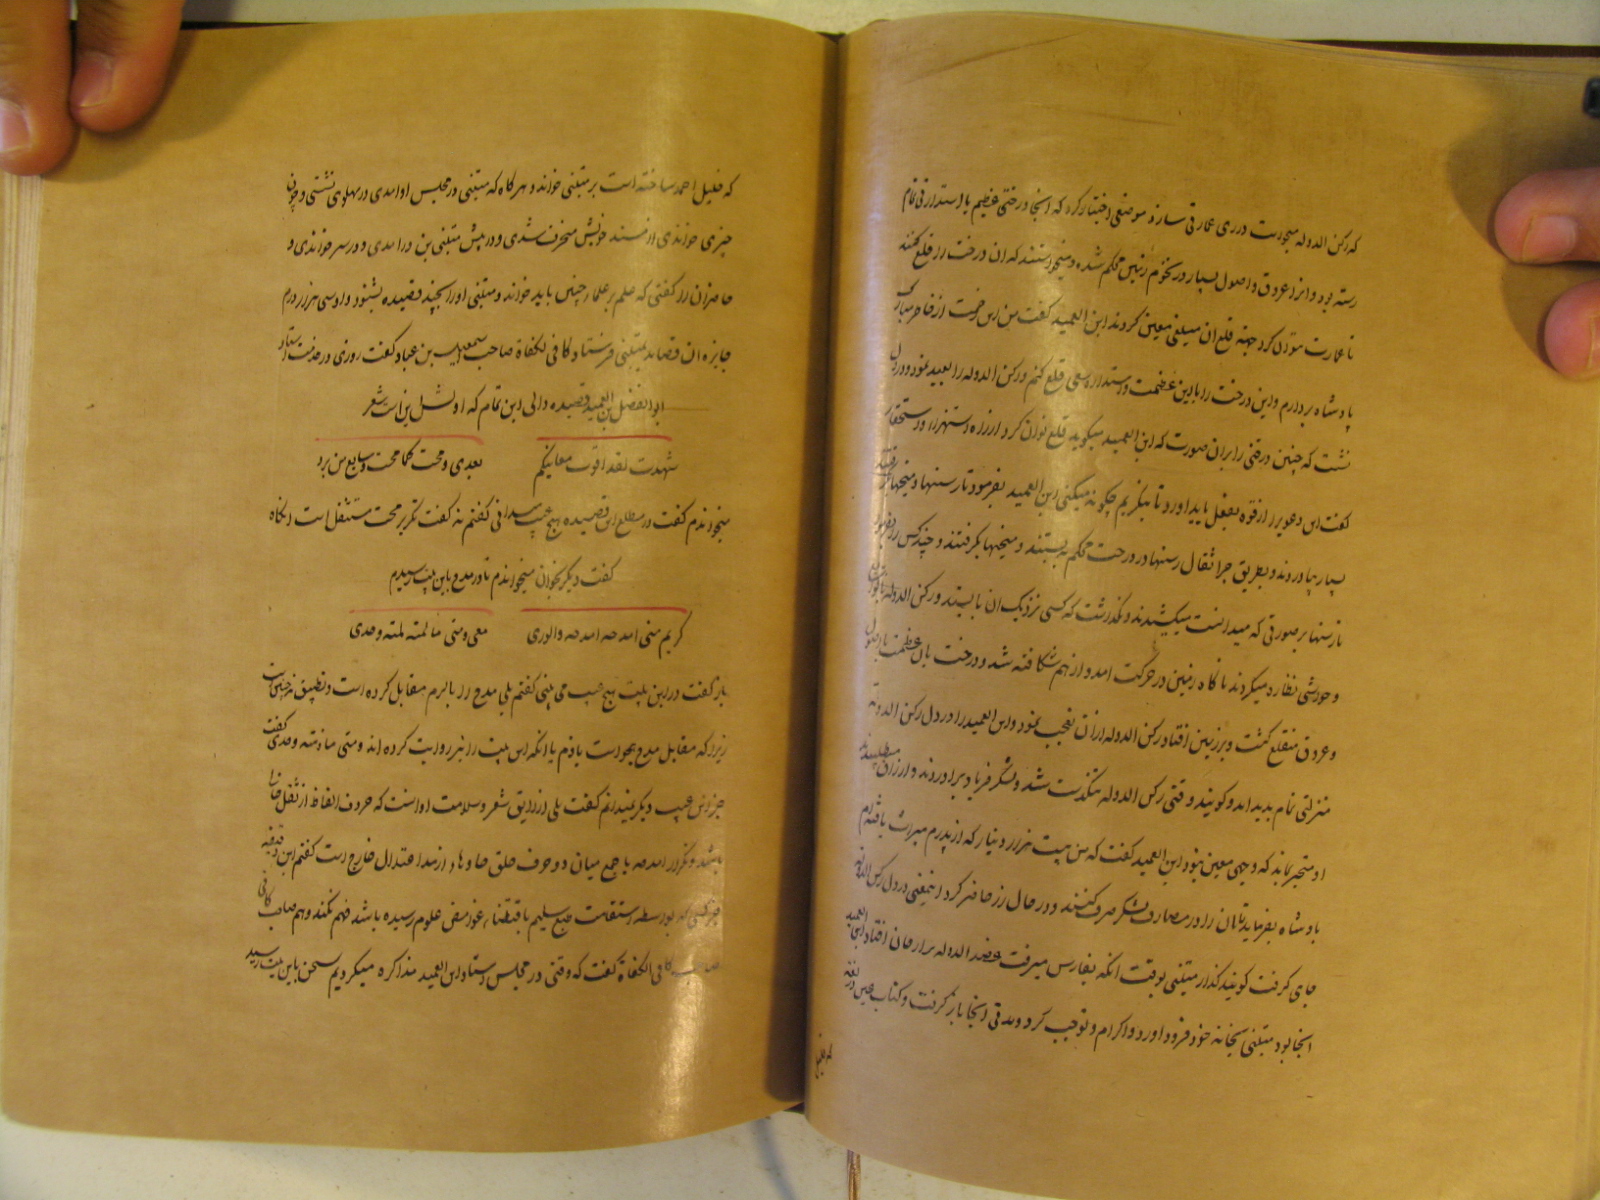 که رکن الدوله میخواست در ری عمارتی سازد موضعی اختیار کرد که آنجا درختی عظیم با استدارتی تمام
رسته بود و انرا عروق و اصول بسیار در تخوم زمین محکم شده و میخواستند که ان درخت را قلع کنند
تا عمارت توان کرد جهة قلع ان مبلغی معین کردند ابن العمید کفت من این زحمت از خاطر مبارک
پادشاه بردارم و این درخت را با این عظمت و استداره سعی قلع کنم و رکن الدوله را بعید نمود و در دل
نشت که چنین درختی را بران صورت که ابن العمید میکوید قلع توان کرد از راه استهزا و استحقار
کفت این دعوی را از قوه بفعل باید اورد تا بنکریم چکونه میکنی ابن العمید بفرمود تا رسنها و میخها
بسیار بیاوردند و بطریق جر اثقال رسنها در درخت محکم ببستند و میخها بکرفتند و چند کس را بفرمود
تا رسنها بر صورتی که میدانست میکشیدند و نکذاشت که کسی نزدیک ان بایستد و رکن الدوله
و حواشی نظاره میکردند ناکاه زمین در حرکت امد و از هم شکافته شد و درخت بان عظمت با اصول
و عروق منقلع کشت و بر زمین افتاد رکن الدوله از ان تعجب نمود و ابن العمید را در دل رکن الدوله
منزلتی تمام بدید امد و کویند وقتی رکن الدوله متکدست شد و لشکر فریاد براوردند و ارزاق میطلبیدند
او متحیر بماند که وجهی معین نبود ابن العمید کفت که من بیست هزار دینار که از پدرم میراث یافته ام
پادشاه بفرماید تا ان را در مصارف لشکر صرف کنند و در حال زر حاضر کرد اینمعنی در دل رکن الدوله
جای کرفت کویند کذار متنبی بوقت انکه بفارس میرفت عضد الدوله بر ارجان افتاد ابن العمید
انجا بود متنبی بخانه خود فرود اورد و اکرام و توجیب کرد و مدتی انجا باز کرفت و کتاب عین در لغة
که خلیل احمد ساخته است بر متنبی خواند و هر کاه که متنبی در مجلس او امدی در پهلوی نشستی و چون
چیزی خواندی از مسند خویش منحرف شدی و در پیش متنبی درامدی و درس خواندی و
حاضران را کفتی که علم بر علما چنین باید خواند و متنبی اورا بچند قصیده بستود و او سی هزار درم
جایزه ان قصاید بمتنبی فرستاد و کافی الکفاة صاحب اسمعیل بن عباد کفت روزی در خدمت استاد
ابو الفضل بن العمید قصیده دالی ابن تمام که اولش این است شعر
شهدت لقد اقوت مغانیکم بعدی و محت کما محت وشایع من برد
میخواندم کفت در مطلع این قصیده هیچ عیب میدانی کفتم نه کفت تکریر محت مستثقل است انکاه
کفت دیکر بخوان میخواندم تا در مدح باین بیت رسیدم
کریم متی امدحه امدحه والوری معی ومتی ما لمته لمته وحدی
باز کفت در این بیت هیچ عیب می بینی کفتم بلی مدح را با لوم مقابل کرده است و تطبیق نه چنین است
زیرا که مقابل مدح هجو است یا ذم با انکه این بیت را نیز روایت کرده اند و متی ما ذمته وحدی کفت
جز این عیب دیکر نمیدانم کفت بلی از رایق شعر و سلامت او انست که حروف الفاظ از ثقل خالی
باشد و تکرار امدحه با جمع میان دو حرف حلق حا و ها از مبدا اعتدال خارج است کفتم این دقیقه
جز کسی که بواسطه استقامت طبع سلیم باقتضاء غوامض علوم رسیده باشد فهم نکند و هم صاحب کافی
کافی الکفاة کفت که وقتی در مجلس استاد ابن العمید مذاکره میکردیم سخن باین بیت رسید